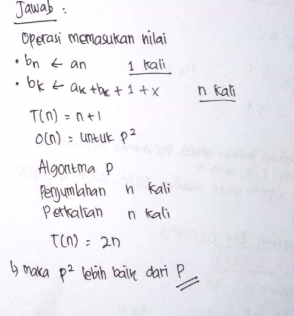 Jawab :
Operasi memasukan nilai
• bn ← an 1 kali
• bk ← ak + bk + 1 + x n kali
T(n) = n+1
O(n) = untuk p²
Algoritma p
Penjumlahan n kali
Perkalian n kali
T(n) = 2n
↳ maka p² lebih baik dari P